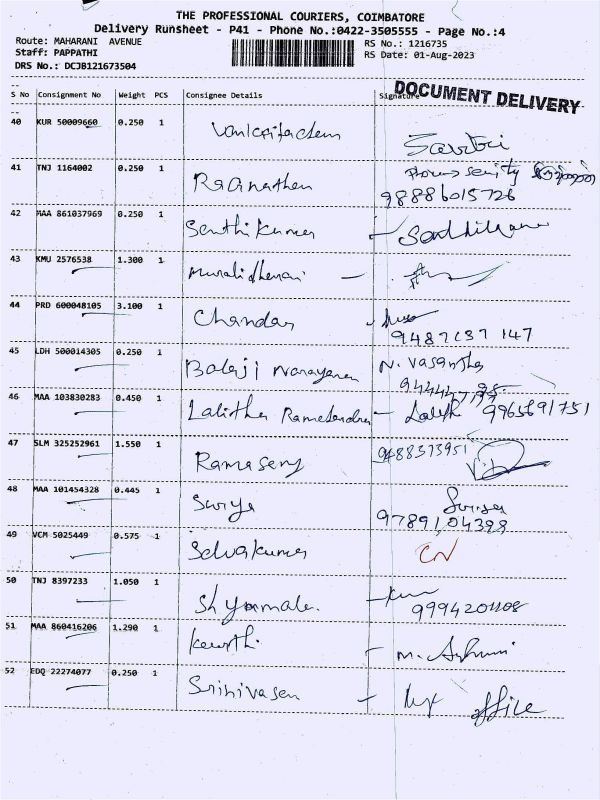 THE PROFESSIONAL COURIERS, COIMBATORE
Delivery Runsheet - P41 - Phone No.:0422-3505555 - Page No.:4
Route: MAHARANI AVENUE RS No.: 1216735
Staff: PAPPATHI RS Date: 01-Aug-2023
DRS No.: DCJB121673504
DOCUMENT DELIVERY
S No Consignment No Weight PCS Consignee Details Signature
40 KUR 50009660 0.250 1
41 TNJ 1164002 0.250 1 Raanathan
98886015726
42 MAA 861037969 0.250 1 Senthilkumar
43 KMU 2576538 1.300 1 Muralidharan
44 PRD 600048105 3.100 1 Chandar
147
45 LDH 500014305 0.250 1 Balaji Narayanan N. Vasantha
46 MAA 103830283 0.450 1 Lalitha 9965691751
47 SLM 325252961 1.550 1 Ramasamy 9488373951
48 MAA 101454328 0.445 1 Surya Surya
97891,04398
49 VCM 5025449 0.575 1 Selvakumar
50 TNJ 8397233 1.050 1 Shyamala.
9994201108
51 MAA 860416206 1.290 1 Keerthi
52 EDQ 22274077 0.250 1 Srinivasan office